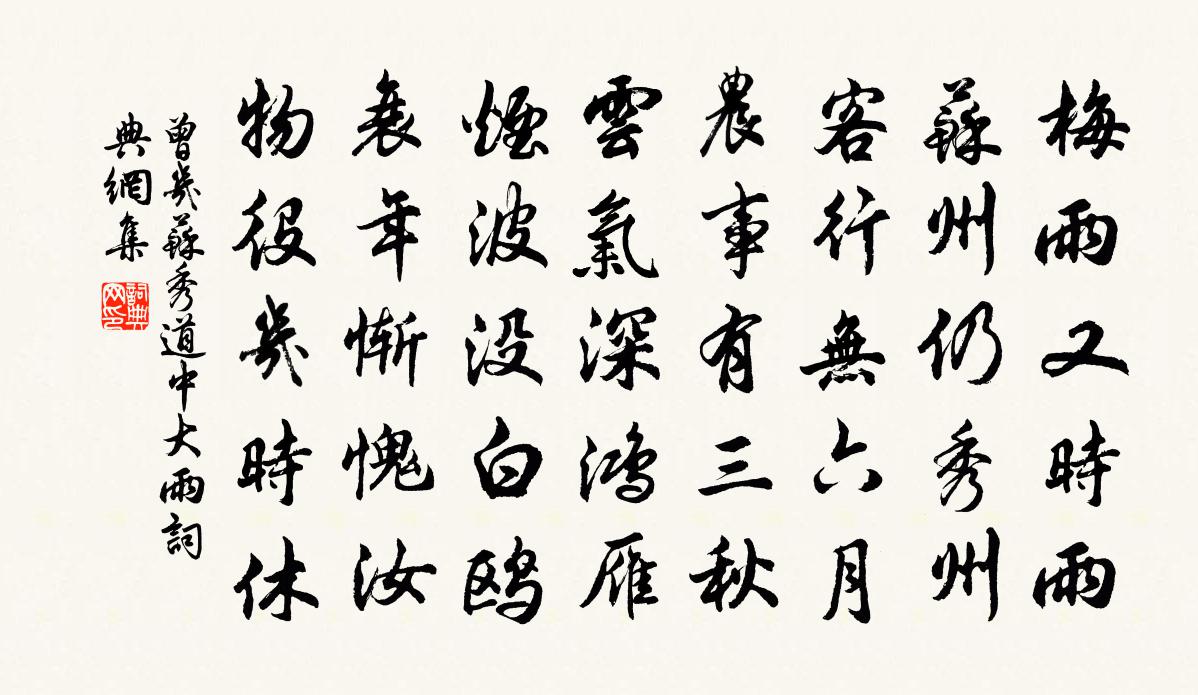 梅雨又時雨
蘇州仍秀州
客行無六月
農事有三秋
雲氣深鴻雁
煙波没白鷗
衰年慚愧汝
物役幾時休
曾幾蘇秀道中大雨詞
典網集
詞典
网印